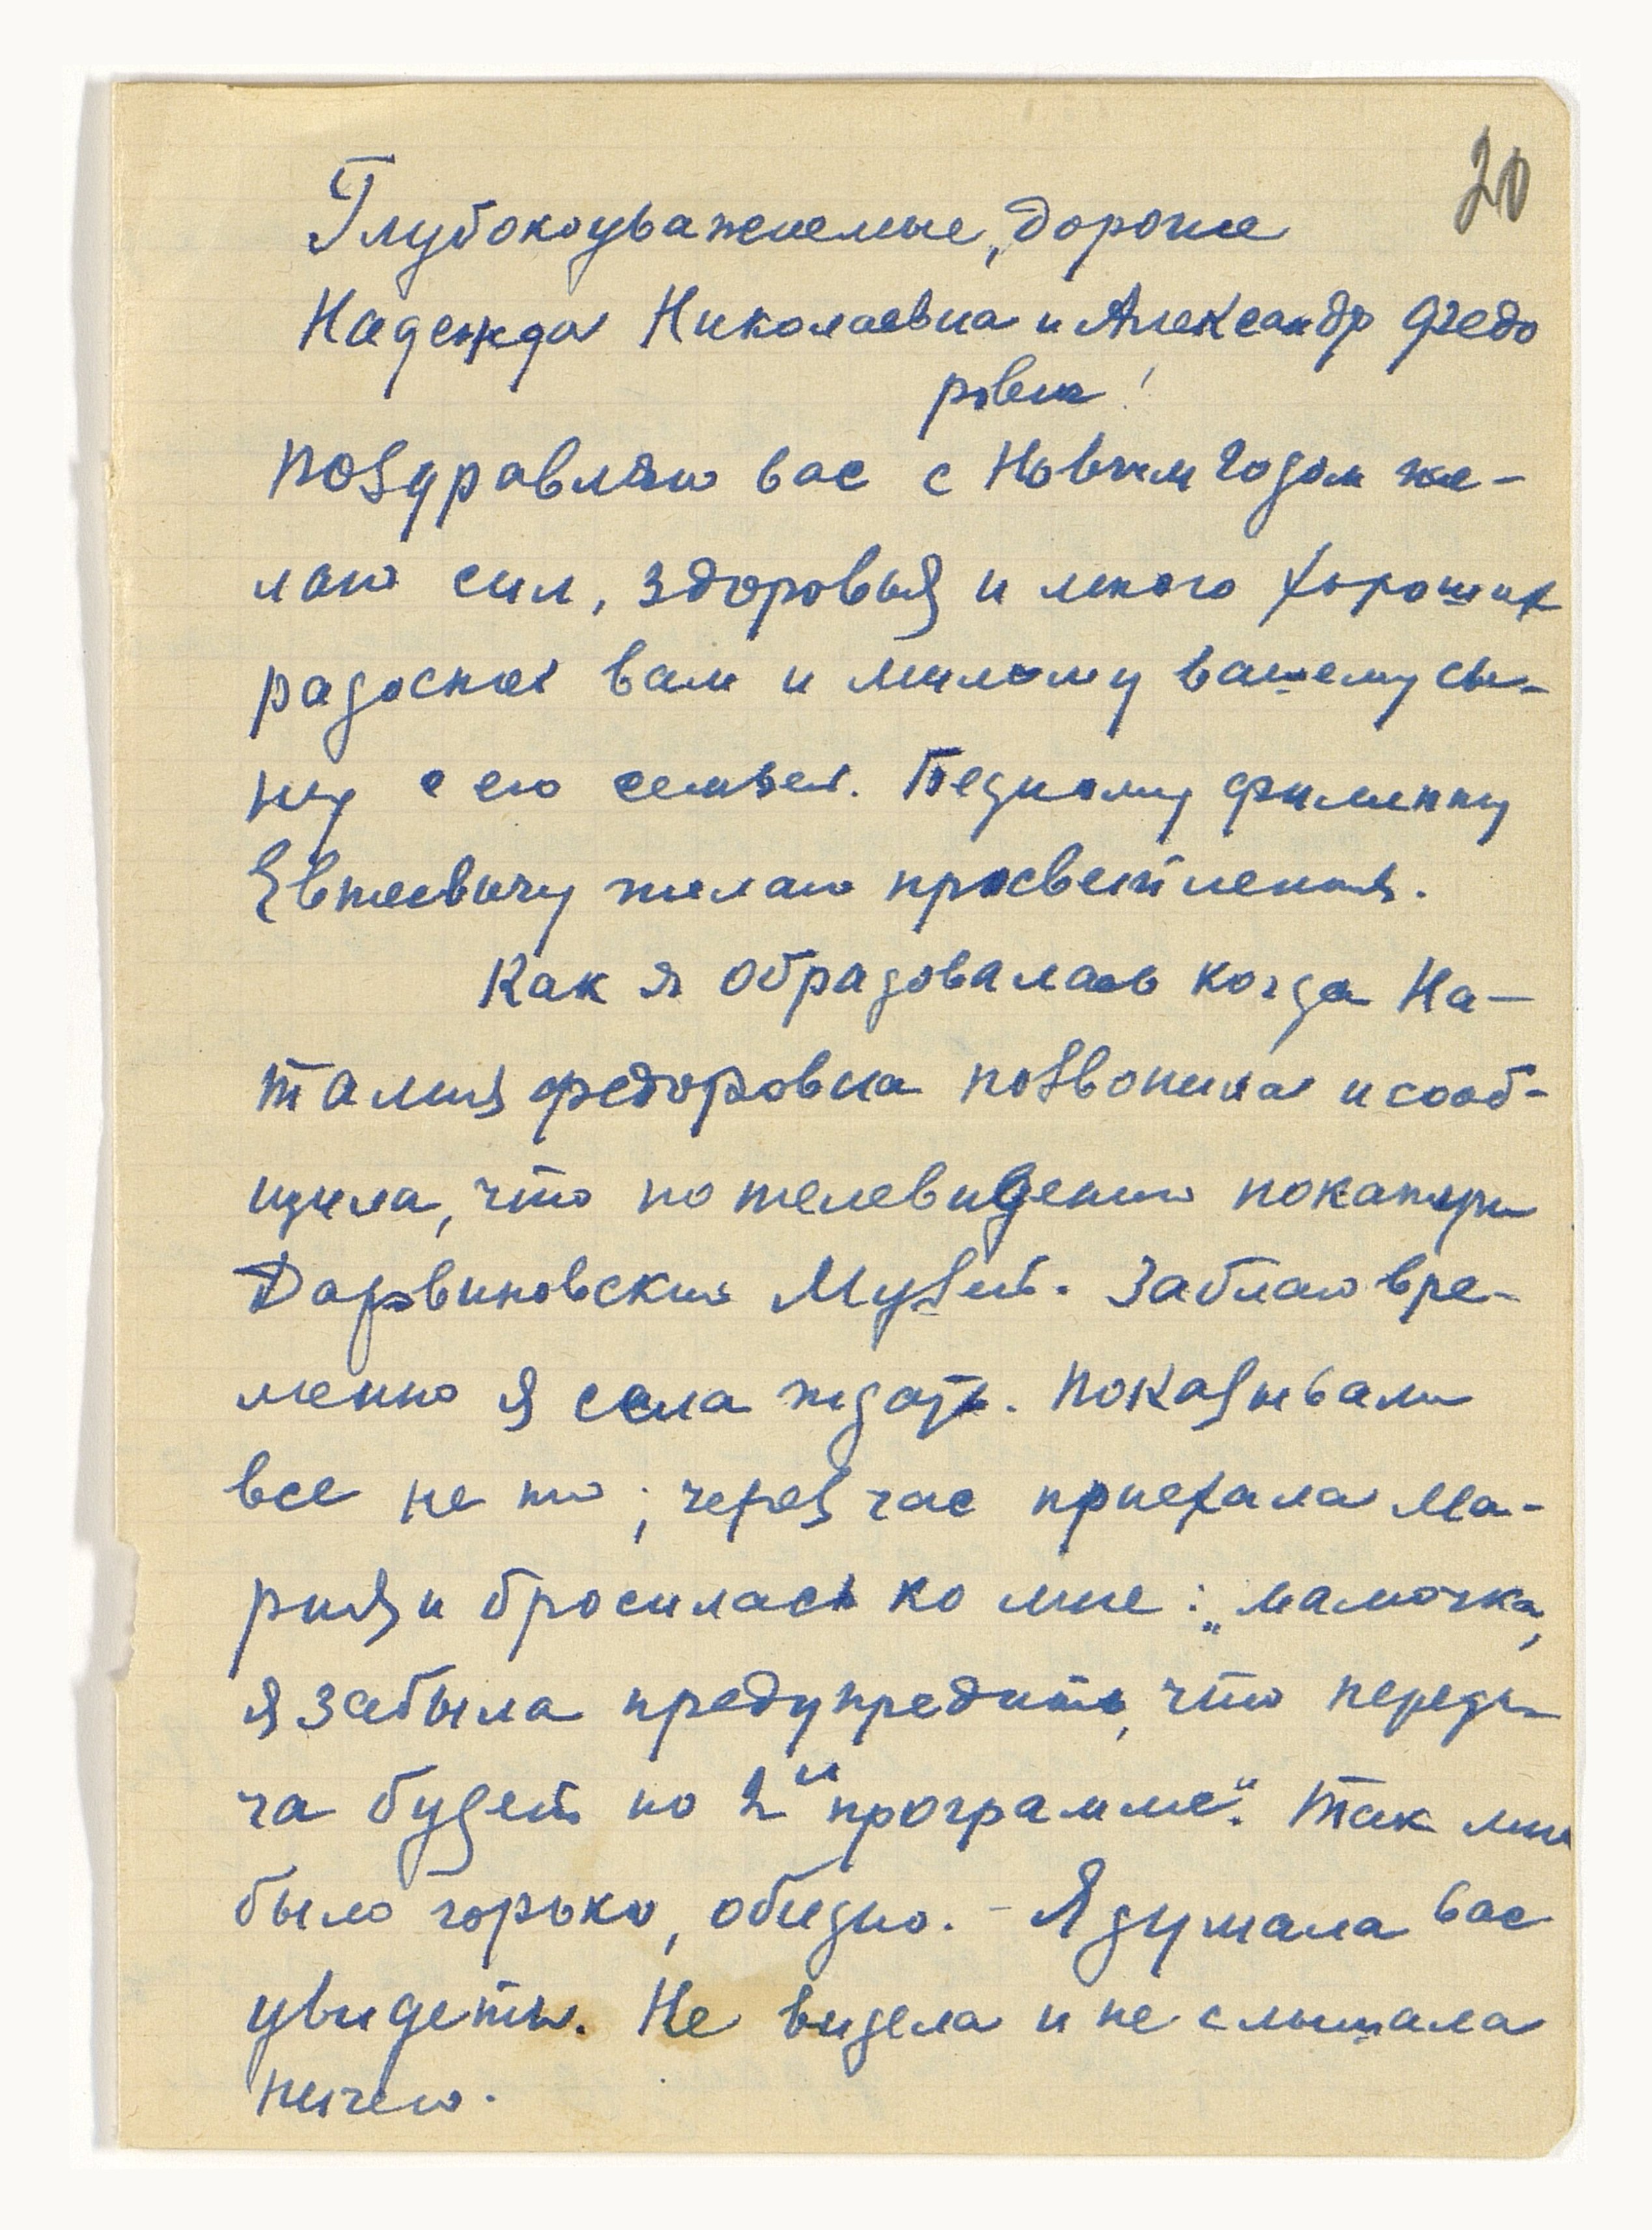 20
Глубокоуважаемые, дорогие
Надежда Николаевна и Александр Федо
рович!
поздравляю вас с Новым годом же-
лаю сил, здоровья и много хороших
радостей вам и милому вашему сы-
ну с его семьей. Бедному Филиппу
Евтеевичу желаю просветления.
Как я обрадовалась когда На-
талия Федоровна позвонила и сооб-
щила, что по телевидению покажут
Дарвиновский Музей. Заблаговре-
менно я села ждать. Показывали
все не то; через час приехала Ма-
рия и бросилась ко мне: „мамочка,
я забыла предупредить, что переда-
ча будет по 2й программе". Так мне
было горько, обидно. - Я думала вас
увидеть. Не видела и не слышала
ничего.